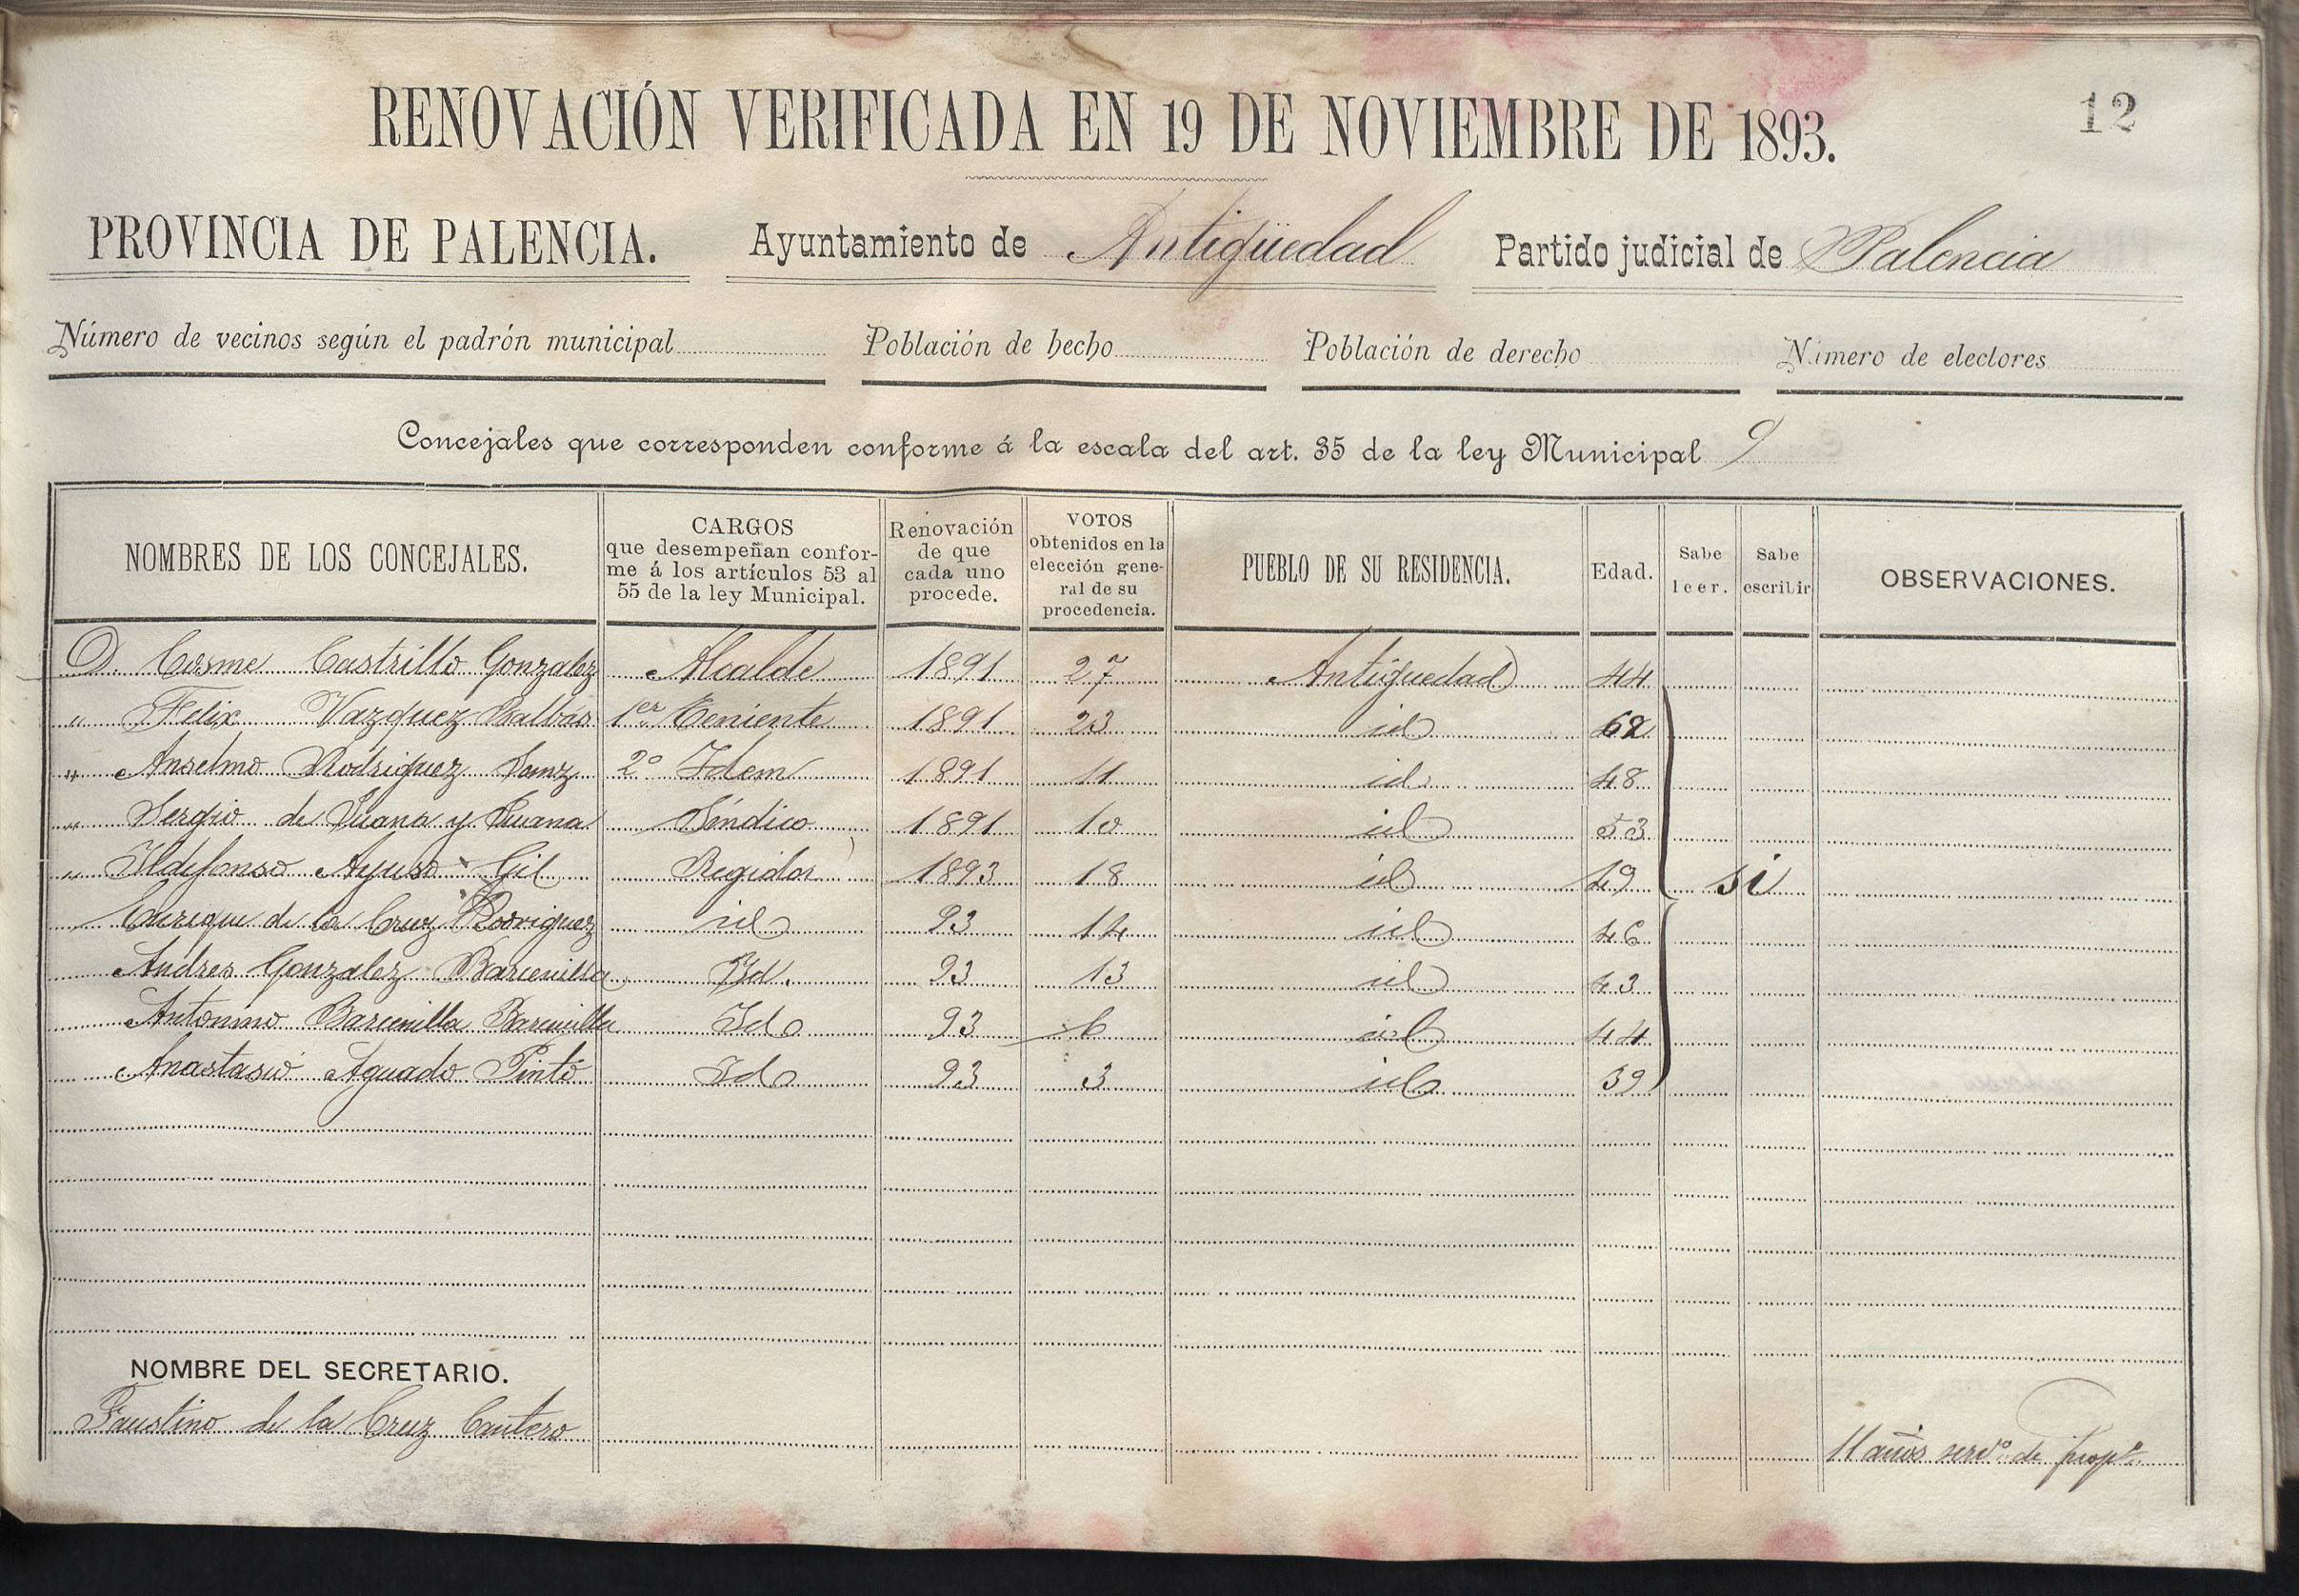 12
RENOVACIÓN VERIFICADA EN 19 DE NOVIEMBRE DE 1893.
PROVINCIA DE PALENCIA. Ayuntamiento de Antigüedad Partido judicial de Palencia
Número de vecinos según el padrón municipal Población de hecho Población de derecho Número de electores
Concejales que corresponden conforme á la escala del art. 35 de la ley Municipal 9
NOMBRES DE LOS CONCEJALES.
CARGOS
que desempeñan confor-
me á los artículos 53 al
55 de la ley Municipal.
Renovación
de que
cada uno
procede.
VOTOS
obtenidos en la
elección gene-
ral de su
procedencia.
PUEBLO DE SU RESIDENCIA.
Edad.
Sabe
leer.
Sabe
escribir
OBSERVACIONES.
D. Cosme Castrillo Gonzalez Alcalde 1891 27 Antigüedad 44
" Felix Vazquez Balbás 1er Teniente 1891 23 id 62
" Anselmo Rodriguez Sanz 2º Idem 1891 11 id 48
" Sergio de Juana y Juana Síndico 1891 10 id 53
" Ildefonso Ayuso Gil Regidor 1893 18 id 49 si
Enrique de la Cruz Rodriguez id 93 14 id 46
Andres Gonzalez Barcenilla Id. 93 13 id 43
Antonino Barcenilla Barcenilla Id 93 6 id 44
Anastasio Aguado Pinto Id 93 3 id 39
NOMBRE DEL SECRETARIO.
Faustino de la Cruz Cantero 11 años servº de propº